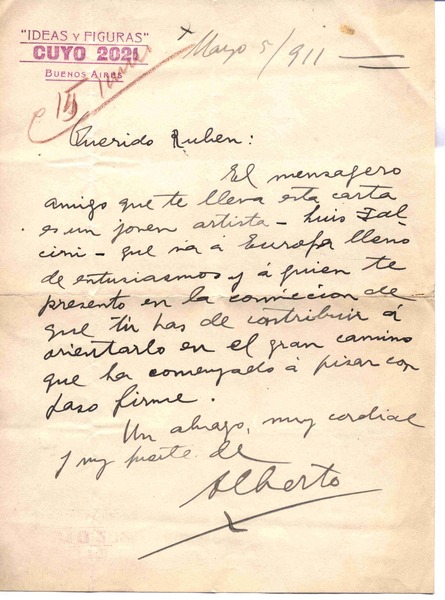 "IDEAS Y FIGURAS"
CUYO 2021
BUENOS AIRES
Mayo 5/911
Querido Ruben:
El mensagero
amigo que te lleva esta carta
es un joven artista - Luis Fal-
cini - que va á Europa lleno
de entusiasmos y á quien te
presento en la conviccion de
que tu has de contribuir á
orientarlo en el gran camino
que ha comenzado á pisar con
paso firme.
Un abrazo, muy cordial
y muy fuerte de
Alberto